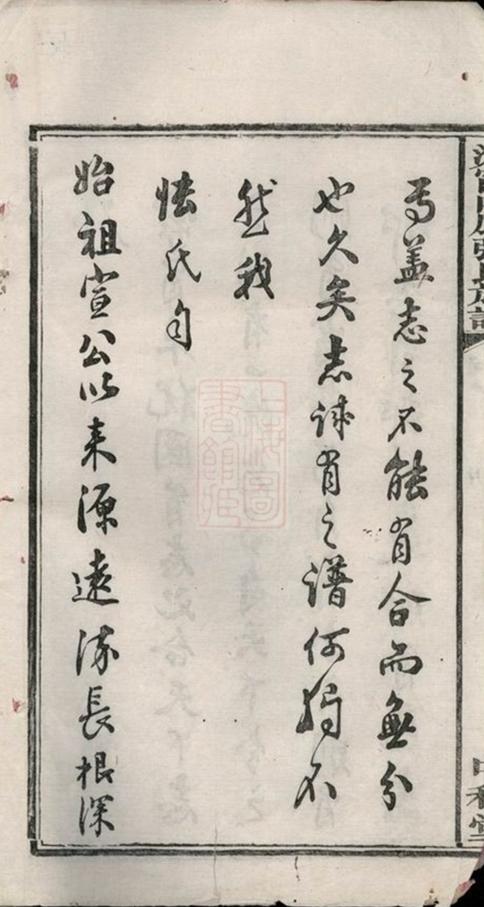 焉盖志之不能有合而無分
也久矣志誠有之譜何獨不
然我
張氏自
始祖宣公以来源遠流長根深
上海圖書館藏